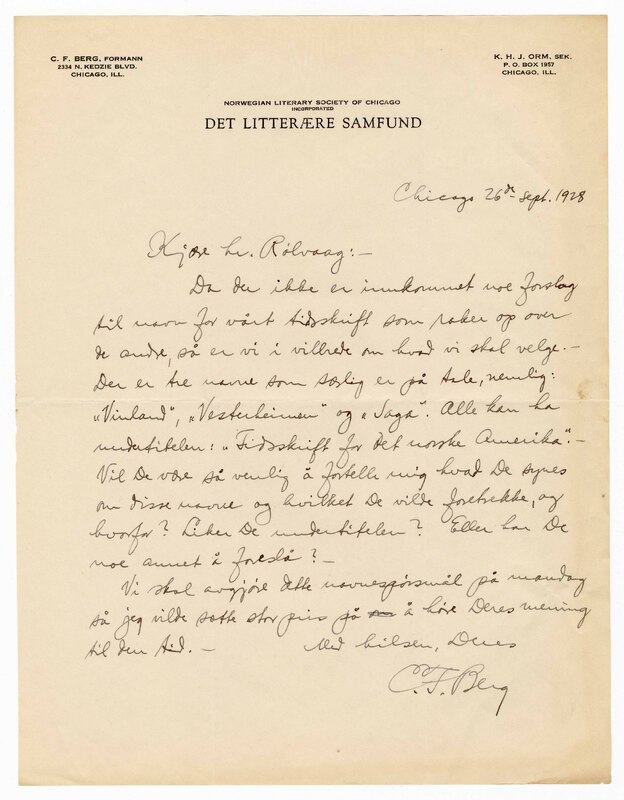 C. F. BERG, FORMANN
2334 N. KEDZIE BLVD.
CHICAGO, ILL.
K. H. J. ORM, SEK.
P. O. BOX 1957
CHICAGO, ILL.
NORWEGIAN LITERARY SOCIETY OF CHICAGO
INCORPORATED
DET LITTERÆRE SAMFUND
Chicago 26de Sept. 1928
Kjære hr. Rølvaag:—
Da der ikke er innkommet noe forslag
til navn for vårt tidsskrift som raker op over
de andre, så er vi i villrede om hvad vi skal velge.—
Der er tre navne som særlig er på tale, nemlig:
„Vinland", „Vesterheimen" og „Saga". Alle kan ha
undertitelen: „Tidsskrift for det norske Amerika".—
Vil De være så venlig å fortelle mig hvad De synes
om disse navne og hvilket De vilde foretrekke, og
hvorfor? Liker De undertitelen? Eller har De
noe annet å foreslå?—
Vi skal avgjøre dette navnespørsmål på mandag
så jeg vilde sætte stor pris på å høre Deres mening
til den tid.— Med hilsen, Deres
C. F. Berg